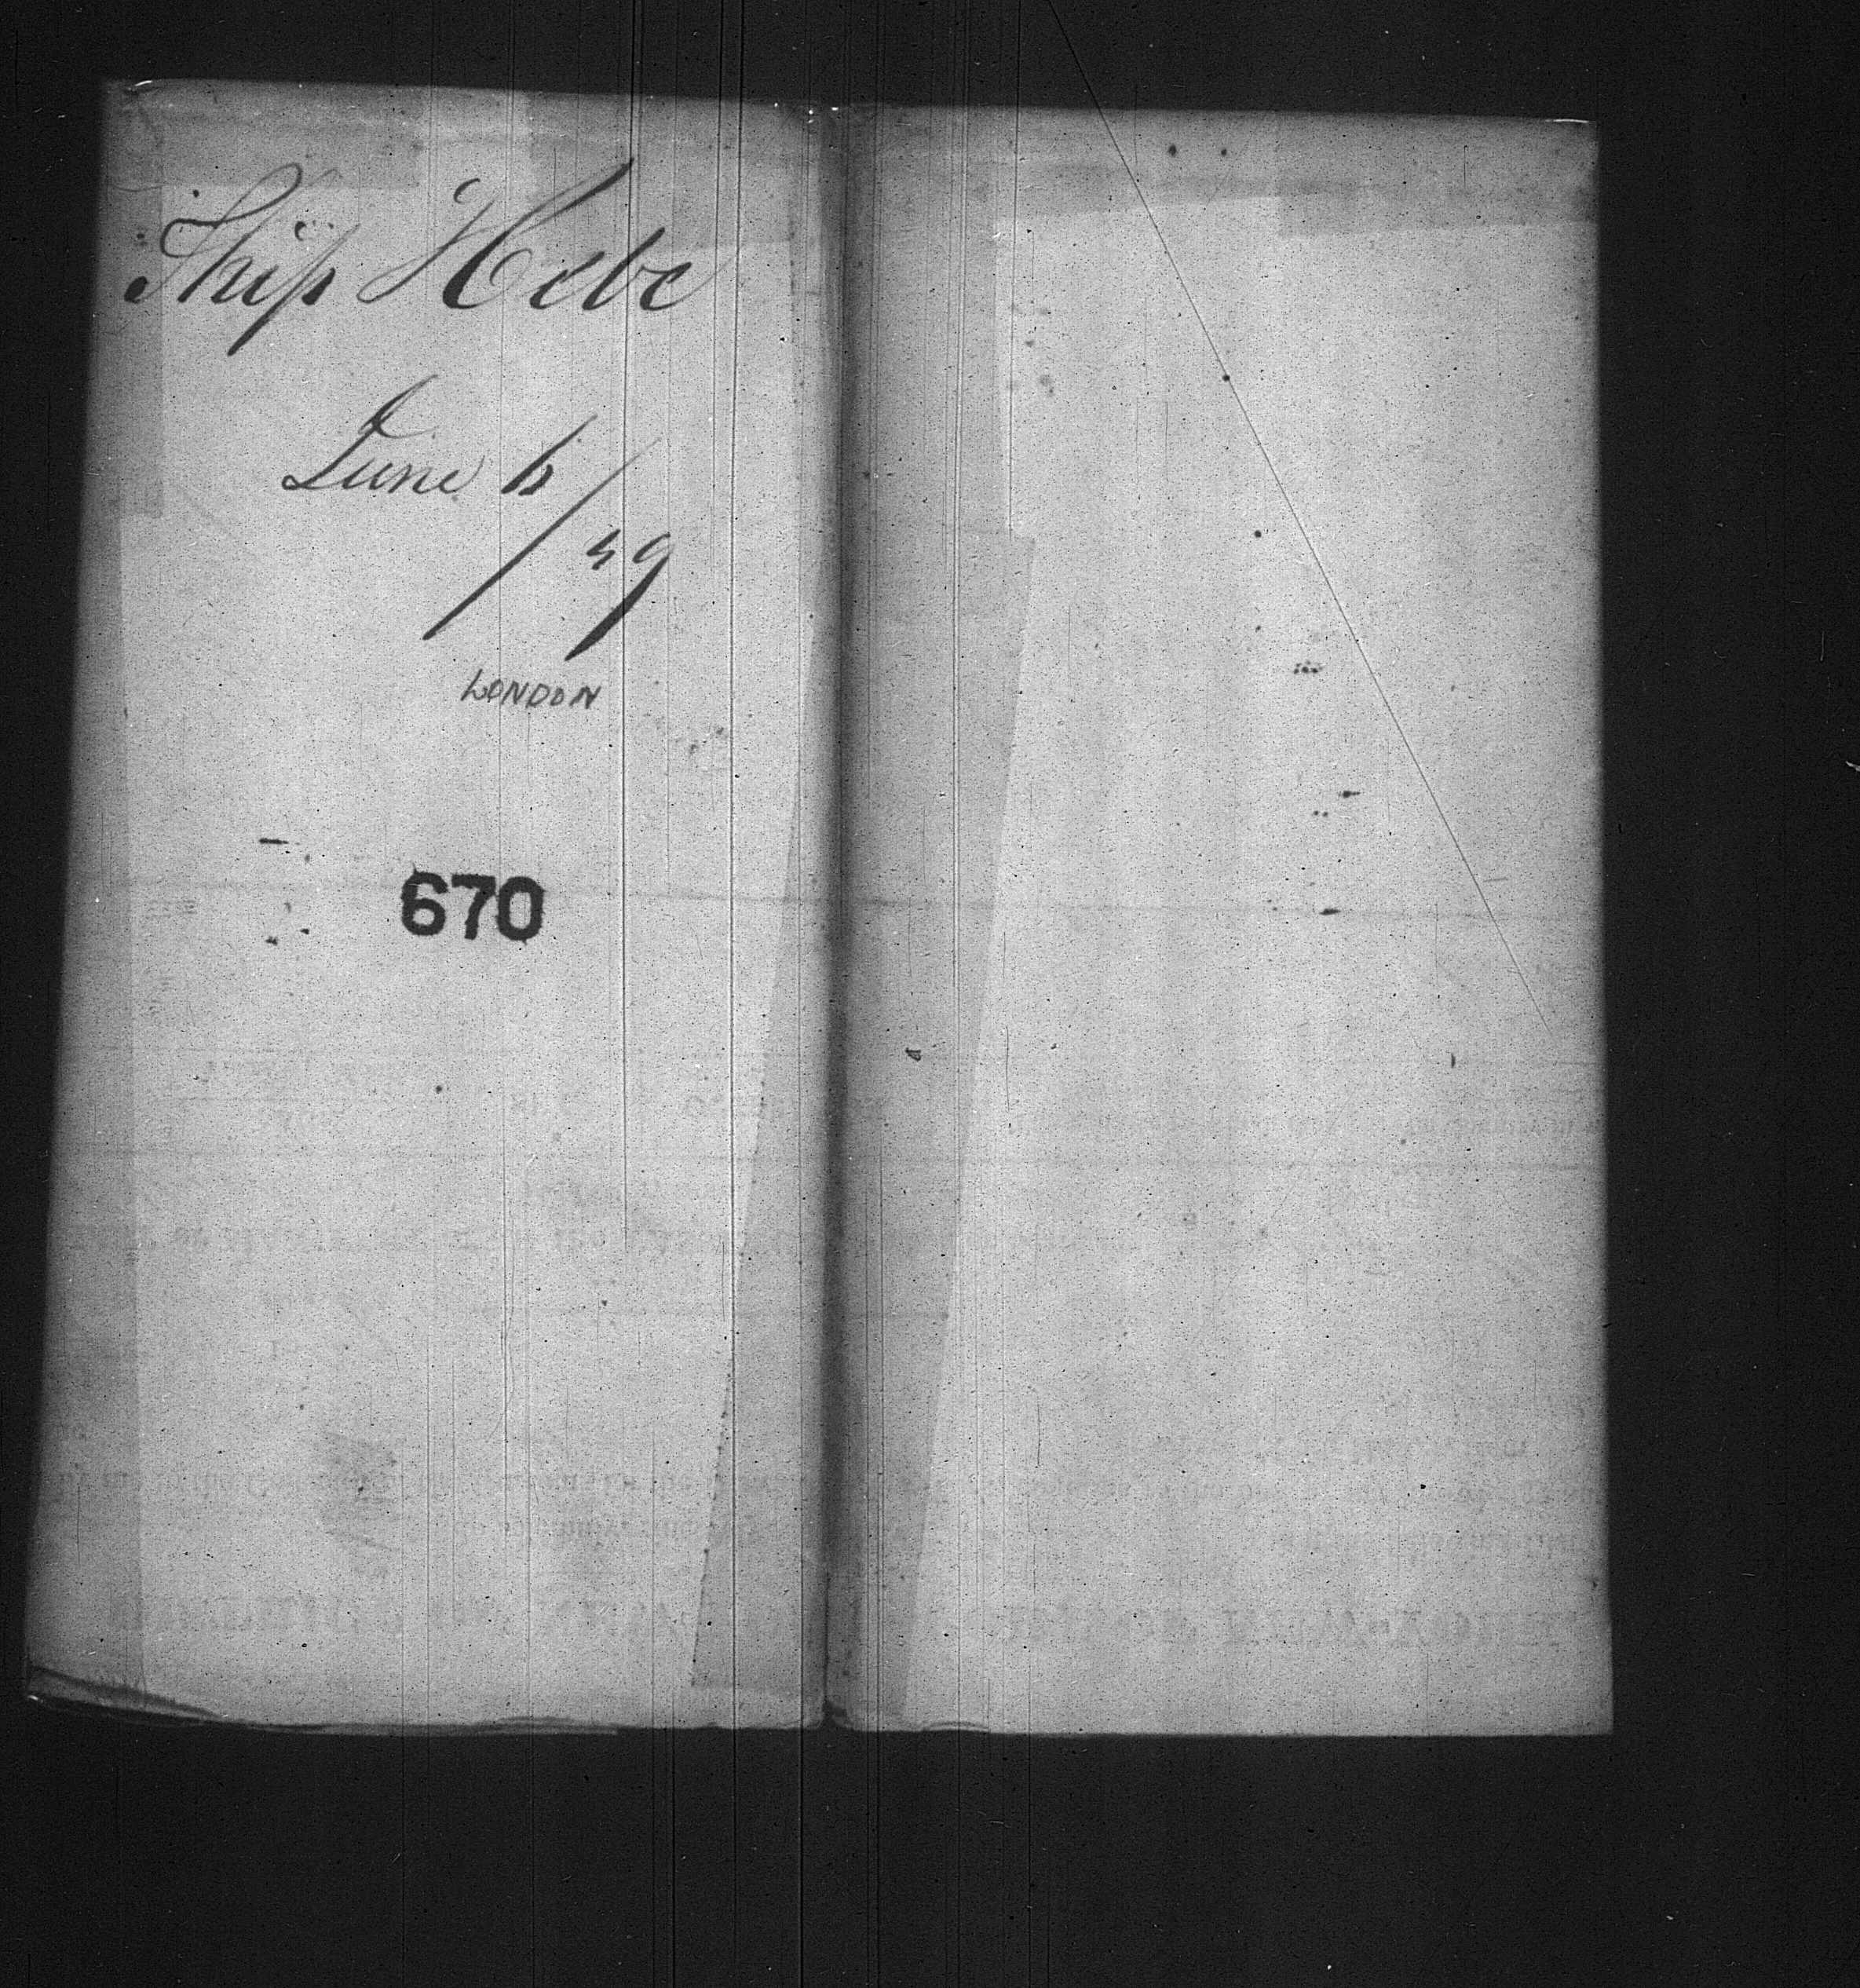 Ship Hebe
June 6/49
LONDON
670